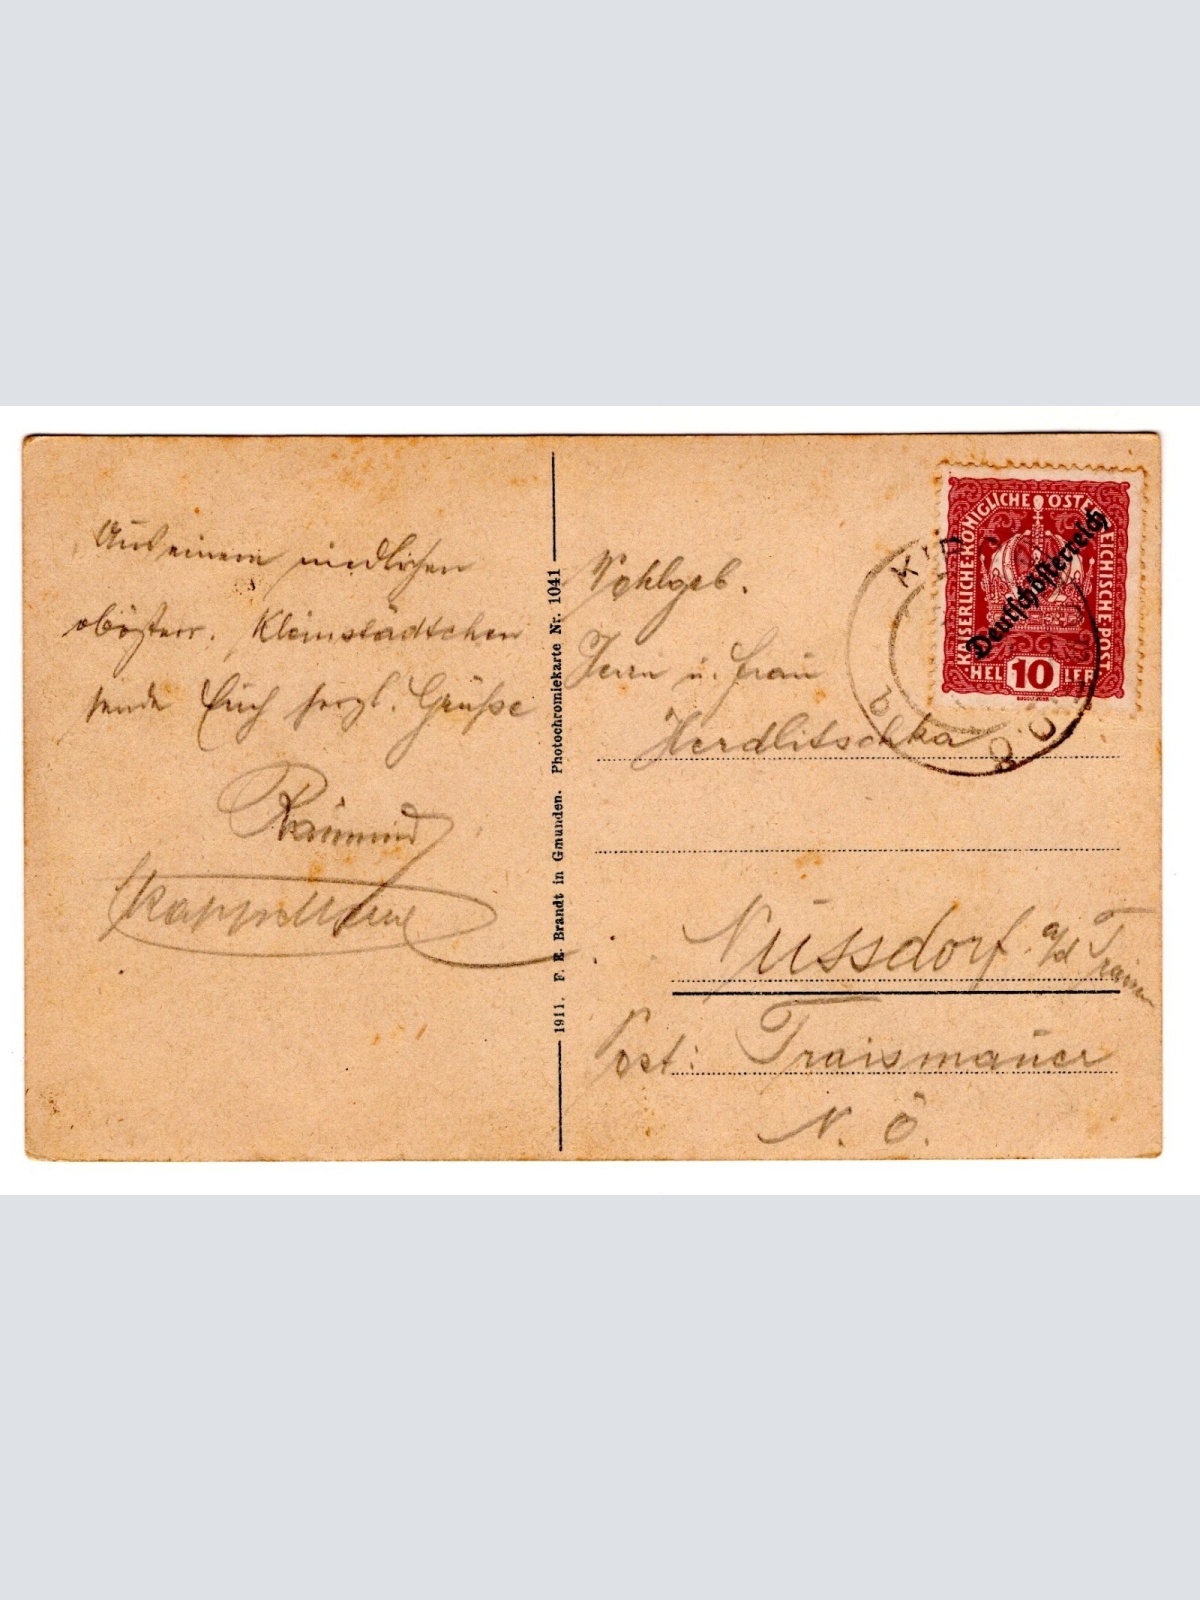 Aus einem niedlichen
oböster. Kleinstädtchen
sende Euch herzl. Grüße
Raimund
1911. F. E. Brandt in Gmunden. Photochromiekarte Nr. 1041
KAISERLICHE KÖNIGLICHE ÖSTERREICHISCHE POST
Deutschösterreich
HEL 10 LER
Wohlgeb.
Herrn u. Frau
Herdlitschka
Nussdorf a/d Traisen
Post: Traismauer
N. Ö.